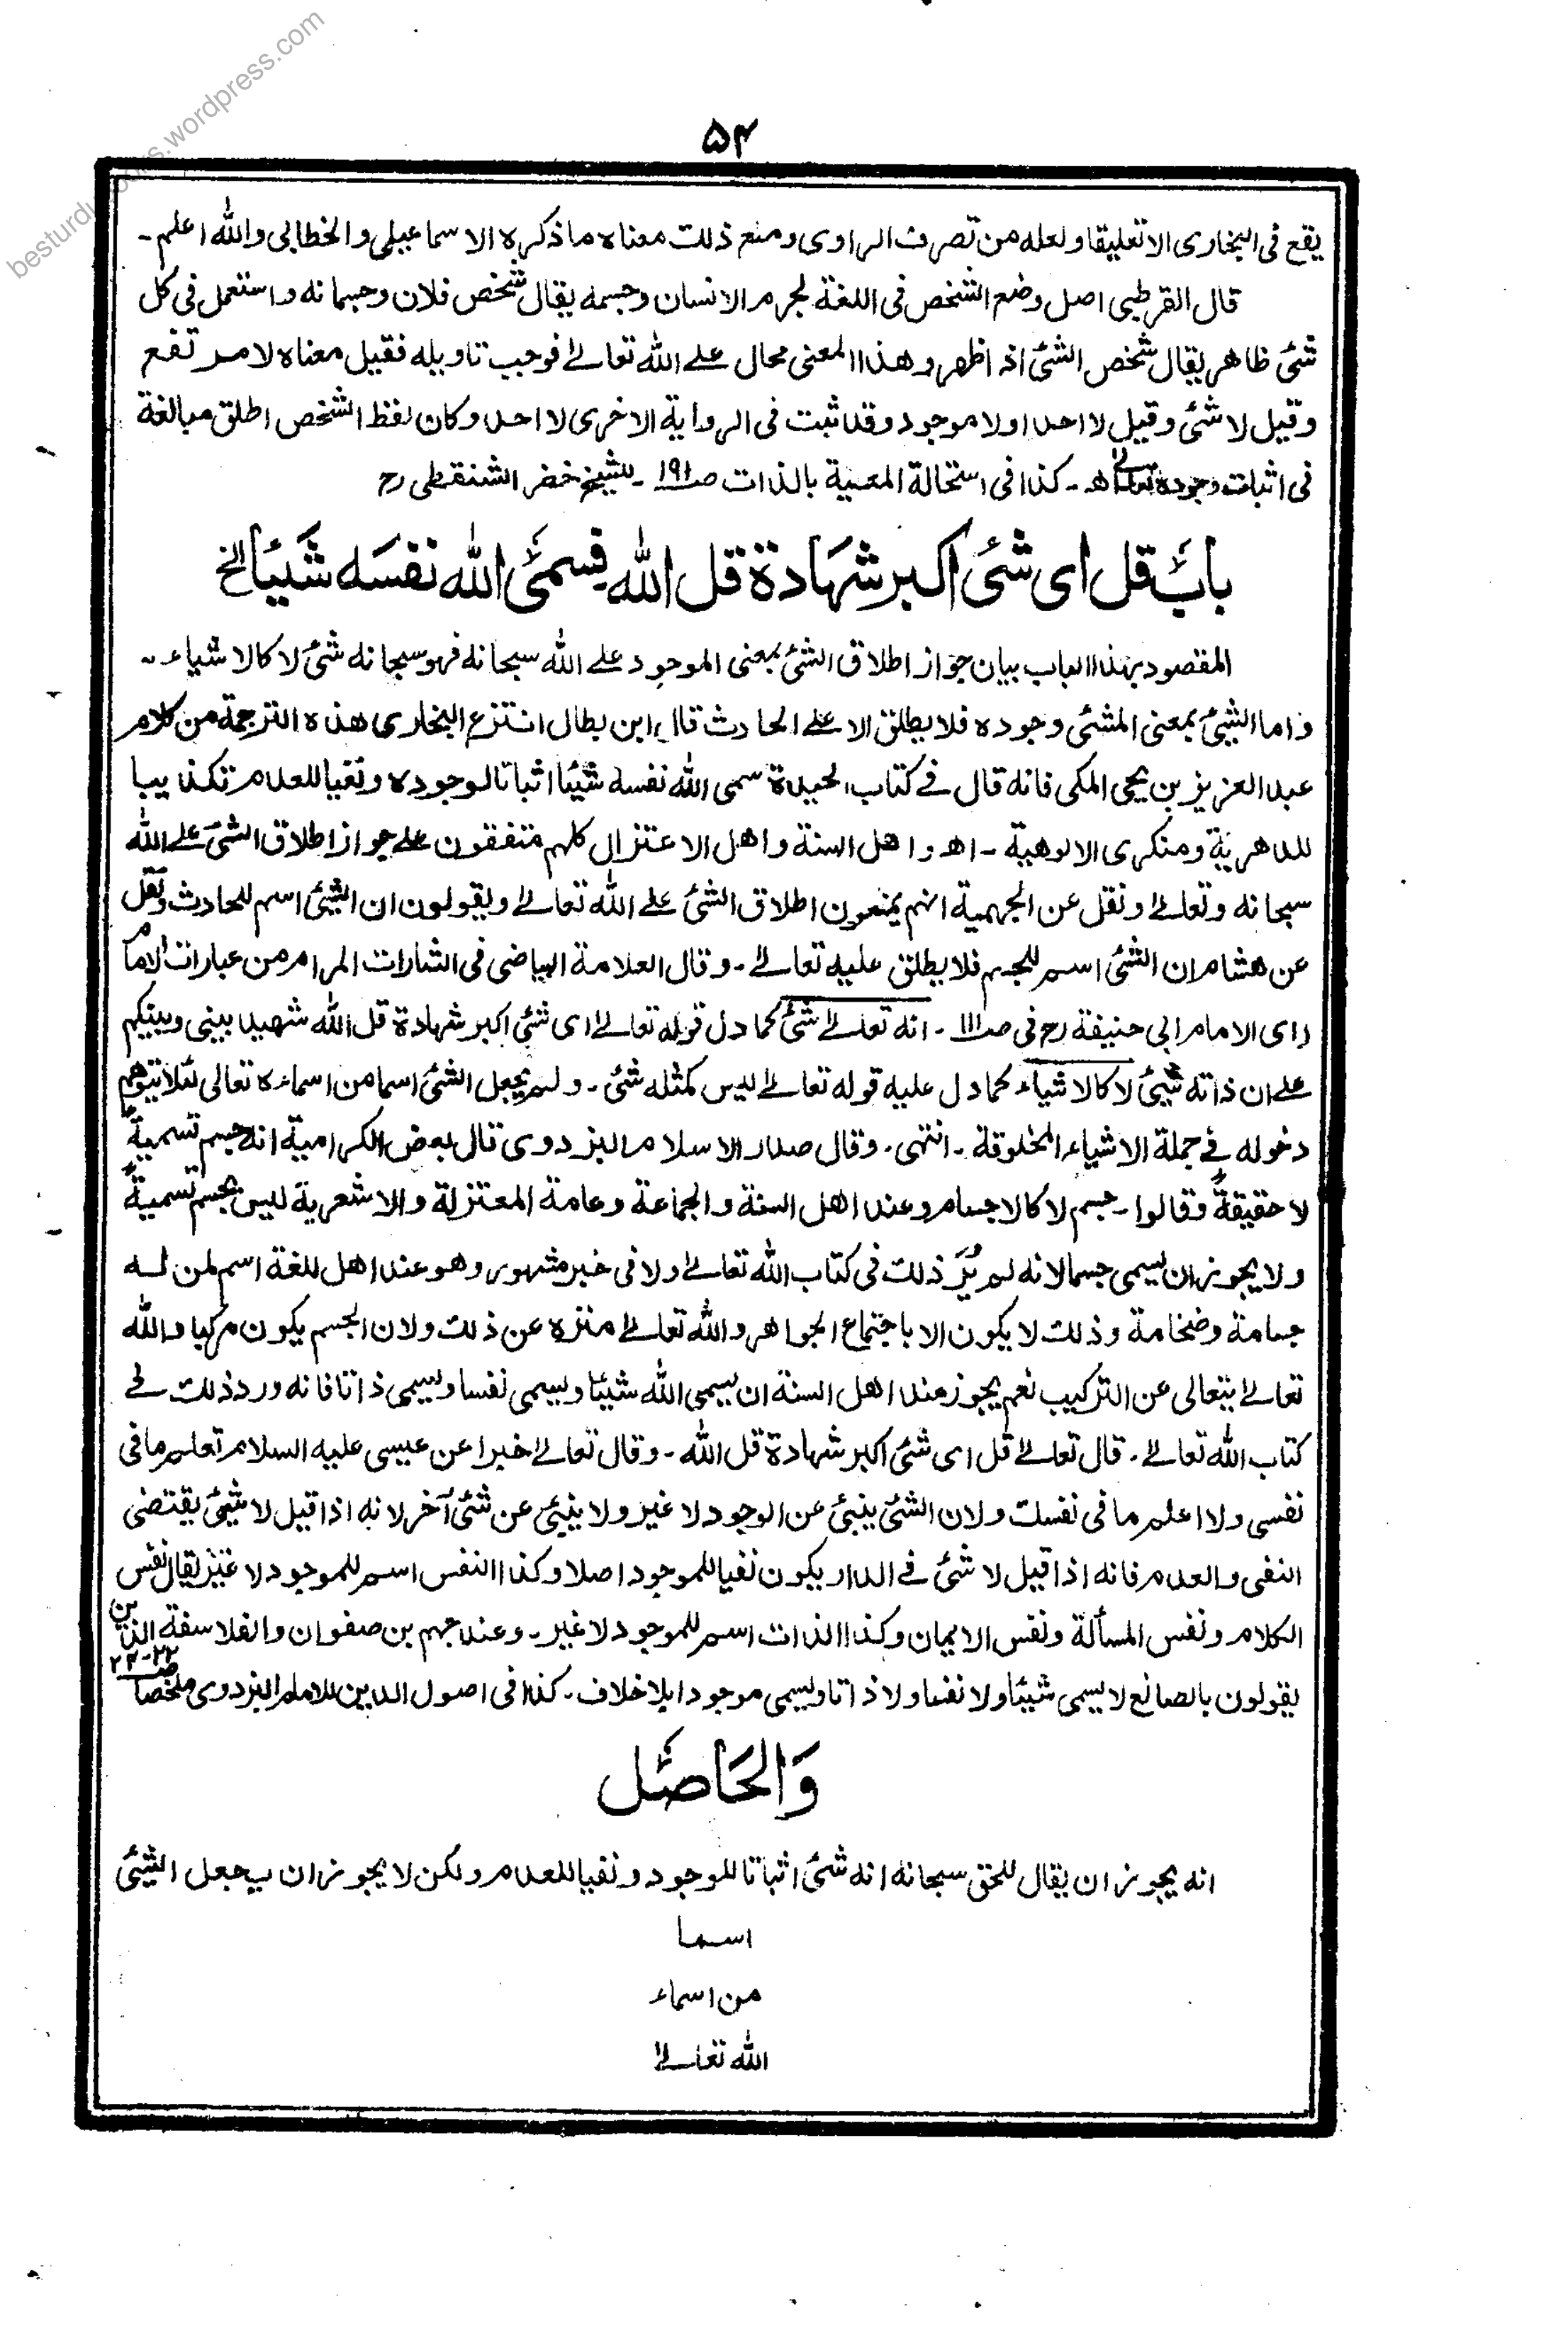 ۵۴
يقع فى البخارى الا تعليقا ولعله من تصرف الراوى ومنع ذلك معناه ما ذكره الاسماعيلى والخطابى والله اعلم۔
قال القرطبى اصل وضع الشخص فى اللغة لجرم الانسان وجسمه يقال شخص فلان وجسمانه واستعمل فى كل
شئ ظاهر يقال شخص الشئ اذا ظهر وهذا المعنى محال على الله تعالى فوجب تاويله فقيل معناه لا مرتفع
وقيل لا شئ وقيل لا احد او لا موجود وقد ثبت فى الرواية الاخرى لا احد وكان لفظ الشخص اطلق مبالغة
فى اثبات وجوده تعالى اهـ۔ كذا فى استحالة المعية بالذات صـ۱۹۱۔ للشيخ خضر الشنقطى رح
باب قل اى شئ اكبر شهادة قل الله فسمى الله نفسه شيئا الخ
المقصود بهذا الباب بيان جواز اطلاق الشئ بمعنى الموجود على الله سبحانه فهو سبحانه شئ لا كالاشياء۔
واما الشيئ بمعنى المشئى وجوده فلا يطلق الا على الحادث قال ابن بطال انتزع البخارى هذه الترجمة من كلام
عبد العزيز بن يحيى المكى فانه قال فے كتاب الحيدة سمى الله نفسه شيئا اثباتا لوجوده ونفيا للعدم تكذيبا
للدهرية ومنكرى الالوهية۔ اهـ واهل السنة واهل الاعتزال كلهم متفقون على جواز اطلاق الشئ على الله
سبحانه وتعالى ونقل عن الجهمية انهم يمنعون اطلاق الشئ على الله تعالى ويقولون ان الشيئ اسم للحادث ونقل
عن هشام ان الشئ اسم للجسم فلا يطلق عليه تعالى۔ وقال العلامة البياضى فى اشارات المرام من عبارات الامام
(اى الامام ابى حنيفة رح فى صـ۱۱۱۔ انه تعالى شئ كما دل قوله تعالى اى شئ اكبر شهادة قل الله شهيد بينى وبينكم
على ان ذاته شيئ لا كالاشياء كما دل عليه قوله تعالى ليس كمثله شئ۔ ولم يجعل الشئ اسما من اسماءه تعالى لئلا يتوهم
دخوله فے جملة الاشياء المخلوقة۔ انتهى۔ وقال صدر الاسلام البزدوى قال بعض الكرامية انه جسم تسمية
لا حقيقةً وقالوا۔ جسم لا كالاجسام وعند اهل السنة والجماعة وعامة المعتزلة والاشعرية ليس بجسم تسمية
ولا يجوز ان يسمى جسما لانه لم يُرَ ذلك فى كتاب الله تعالى ولا فى خبر مشهور وهو عند اهل للغة اسم لمن له
جسامة وضخامة وذلك لا يكون الا باجتماع الجواهر والله تعالى منزه عن ذلك ولان الجسم يكون مركبا والله
تعالى يتعالى عن التركيب نعم يجوز عند اهل السنة ان يسمى الله شيئا ويسمى نفسا ويسمى ذاتا فانه ورد ذلك فے
كتاب الله تعالى۔ قال تعالى قل اى شئ اكبر شهادة قل الله۔ وقال تعالى خبرا عن عيسى عليه السلام تعلم ما فى
نفسى ولا اعلم ما فى نفسك ولان الشئ ينبئ عن الوجود لا غير ولا ينبئ عن شئ آخر لانه اذا قيل لا شيئ يقتضى
النفى والعدم فانه اذا قيل لا شئ فے الدار يكون نفيا للموجود اصلا وكذا النفس اسم للموجود لا غير يقال نفس
الكلام ونفس المسألة ونفس الايمان وكذا الذات اسم للموجود لا غير۔ وعند جهم بن صفوان والفلاسفة الذين
يقولون بالصانع لا يسمى شيئا ولا نفسا ولا ذاتا ويسمى موجودا بلا خلاف۔ كذا فى اصول الدين للامام البزدوى ملخصا صـ۲۲-۲۳
وَالحَاصَل
انه يجوز ان يقال للحق سبحانه انه شئ اثباتا للوجود ونفيا للعدم ولكن لا يجوز ان يجعل الشيئ
اسما
من اسماء
الله تعالى